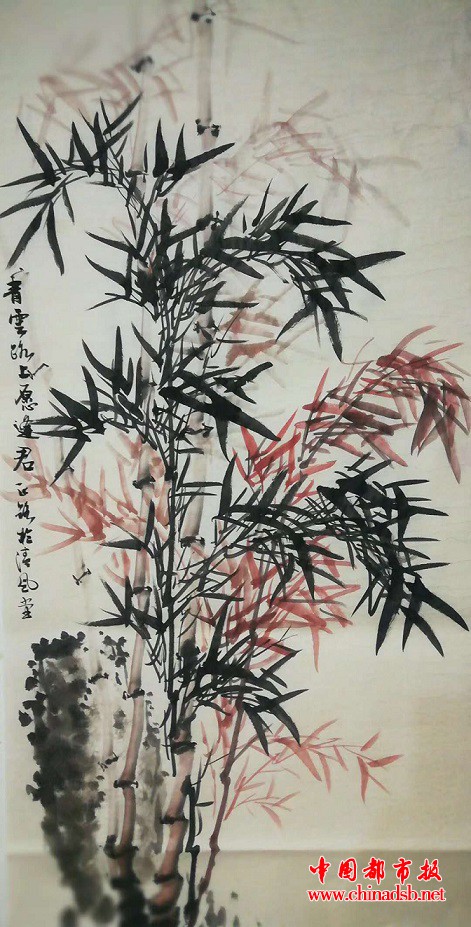 青雲路上愿逢君 正路於清風堂
中国都市报
www.chinadsb.net